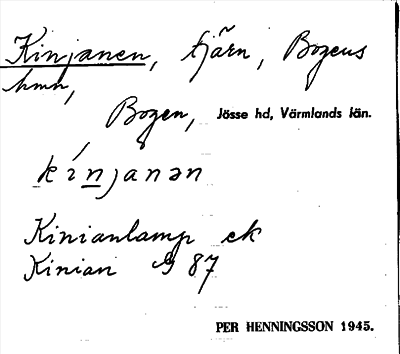 Kinjanen, tjärn, Bogens
hmn,
Bogen, Jösse hd, Värmlands län.
kínjanən
Kinianlamp ek
Kinian G 87
PER HENNINGSSON 1945.